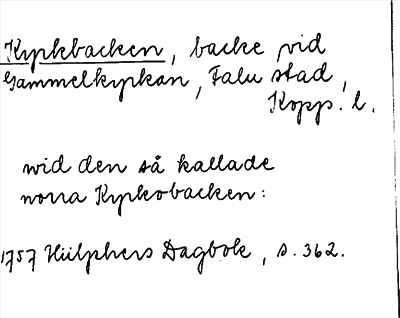 Kyrkbacken, backe vid
Gammelkyrkan, Falu stad,
Kopp. l.
wid den så kallade
norra Kyrkobacken:
1757 Hülphers Dagbok, s. 362.